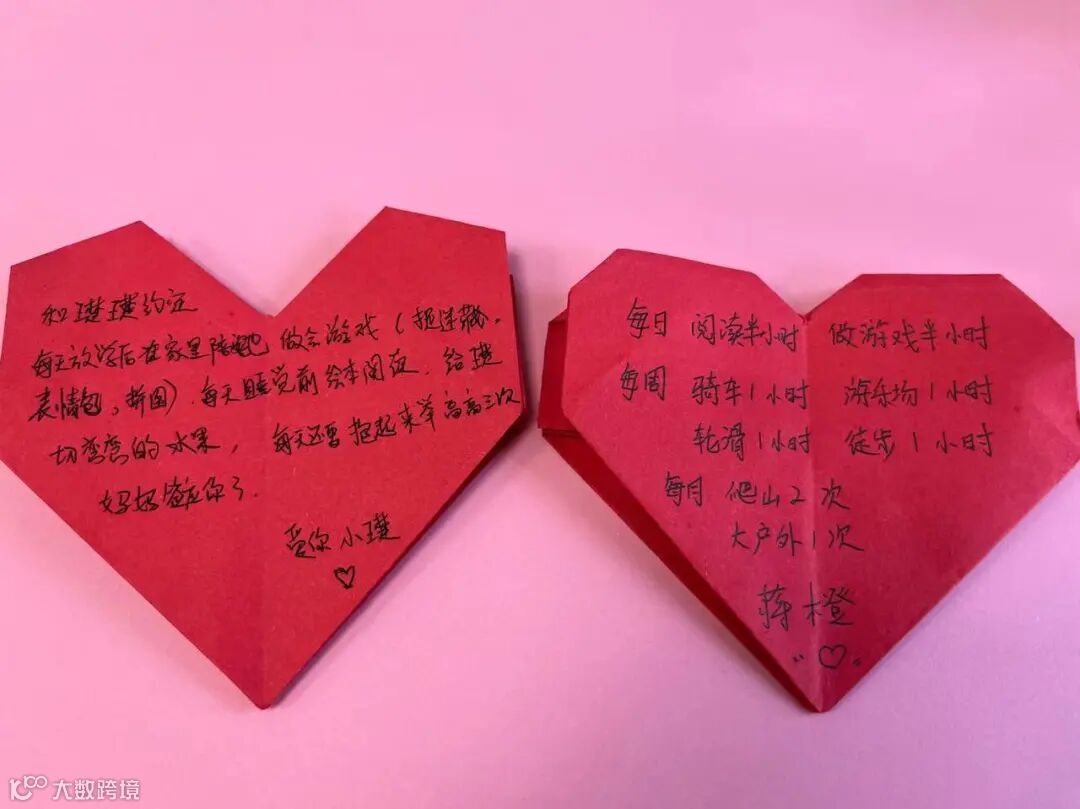 和璟璟约定
每天放学后在家里陪她做会游戏(捉迷藏,
表情包,拼图).每天睡觉前绘本阅读.给璟
切弯弯的水果,每天还要抱起来举高高三次
妈妈答应你了.
爱你小璟
♡
每日 阅读半小时 做游戏半小时
每周 骑车1小时 游乐场1小时
轮滑1小时 徒步1小时
每月 爬山2次
大户外1次
蒋橙
"♡"
大数跨境